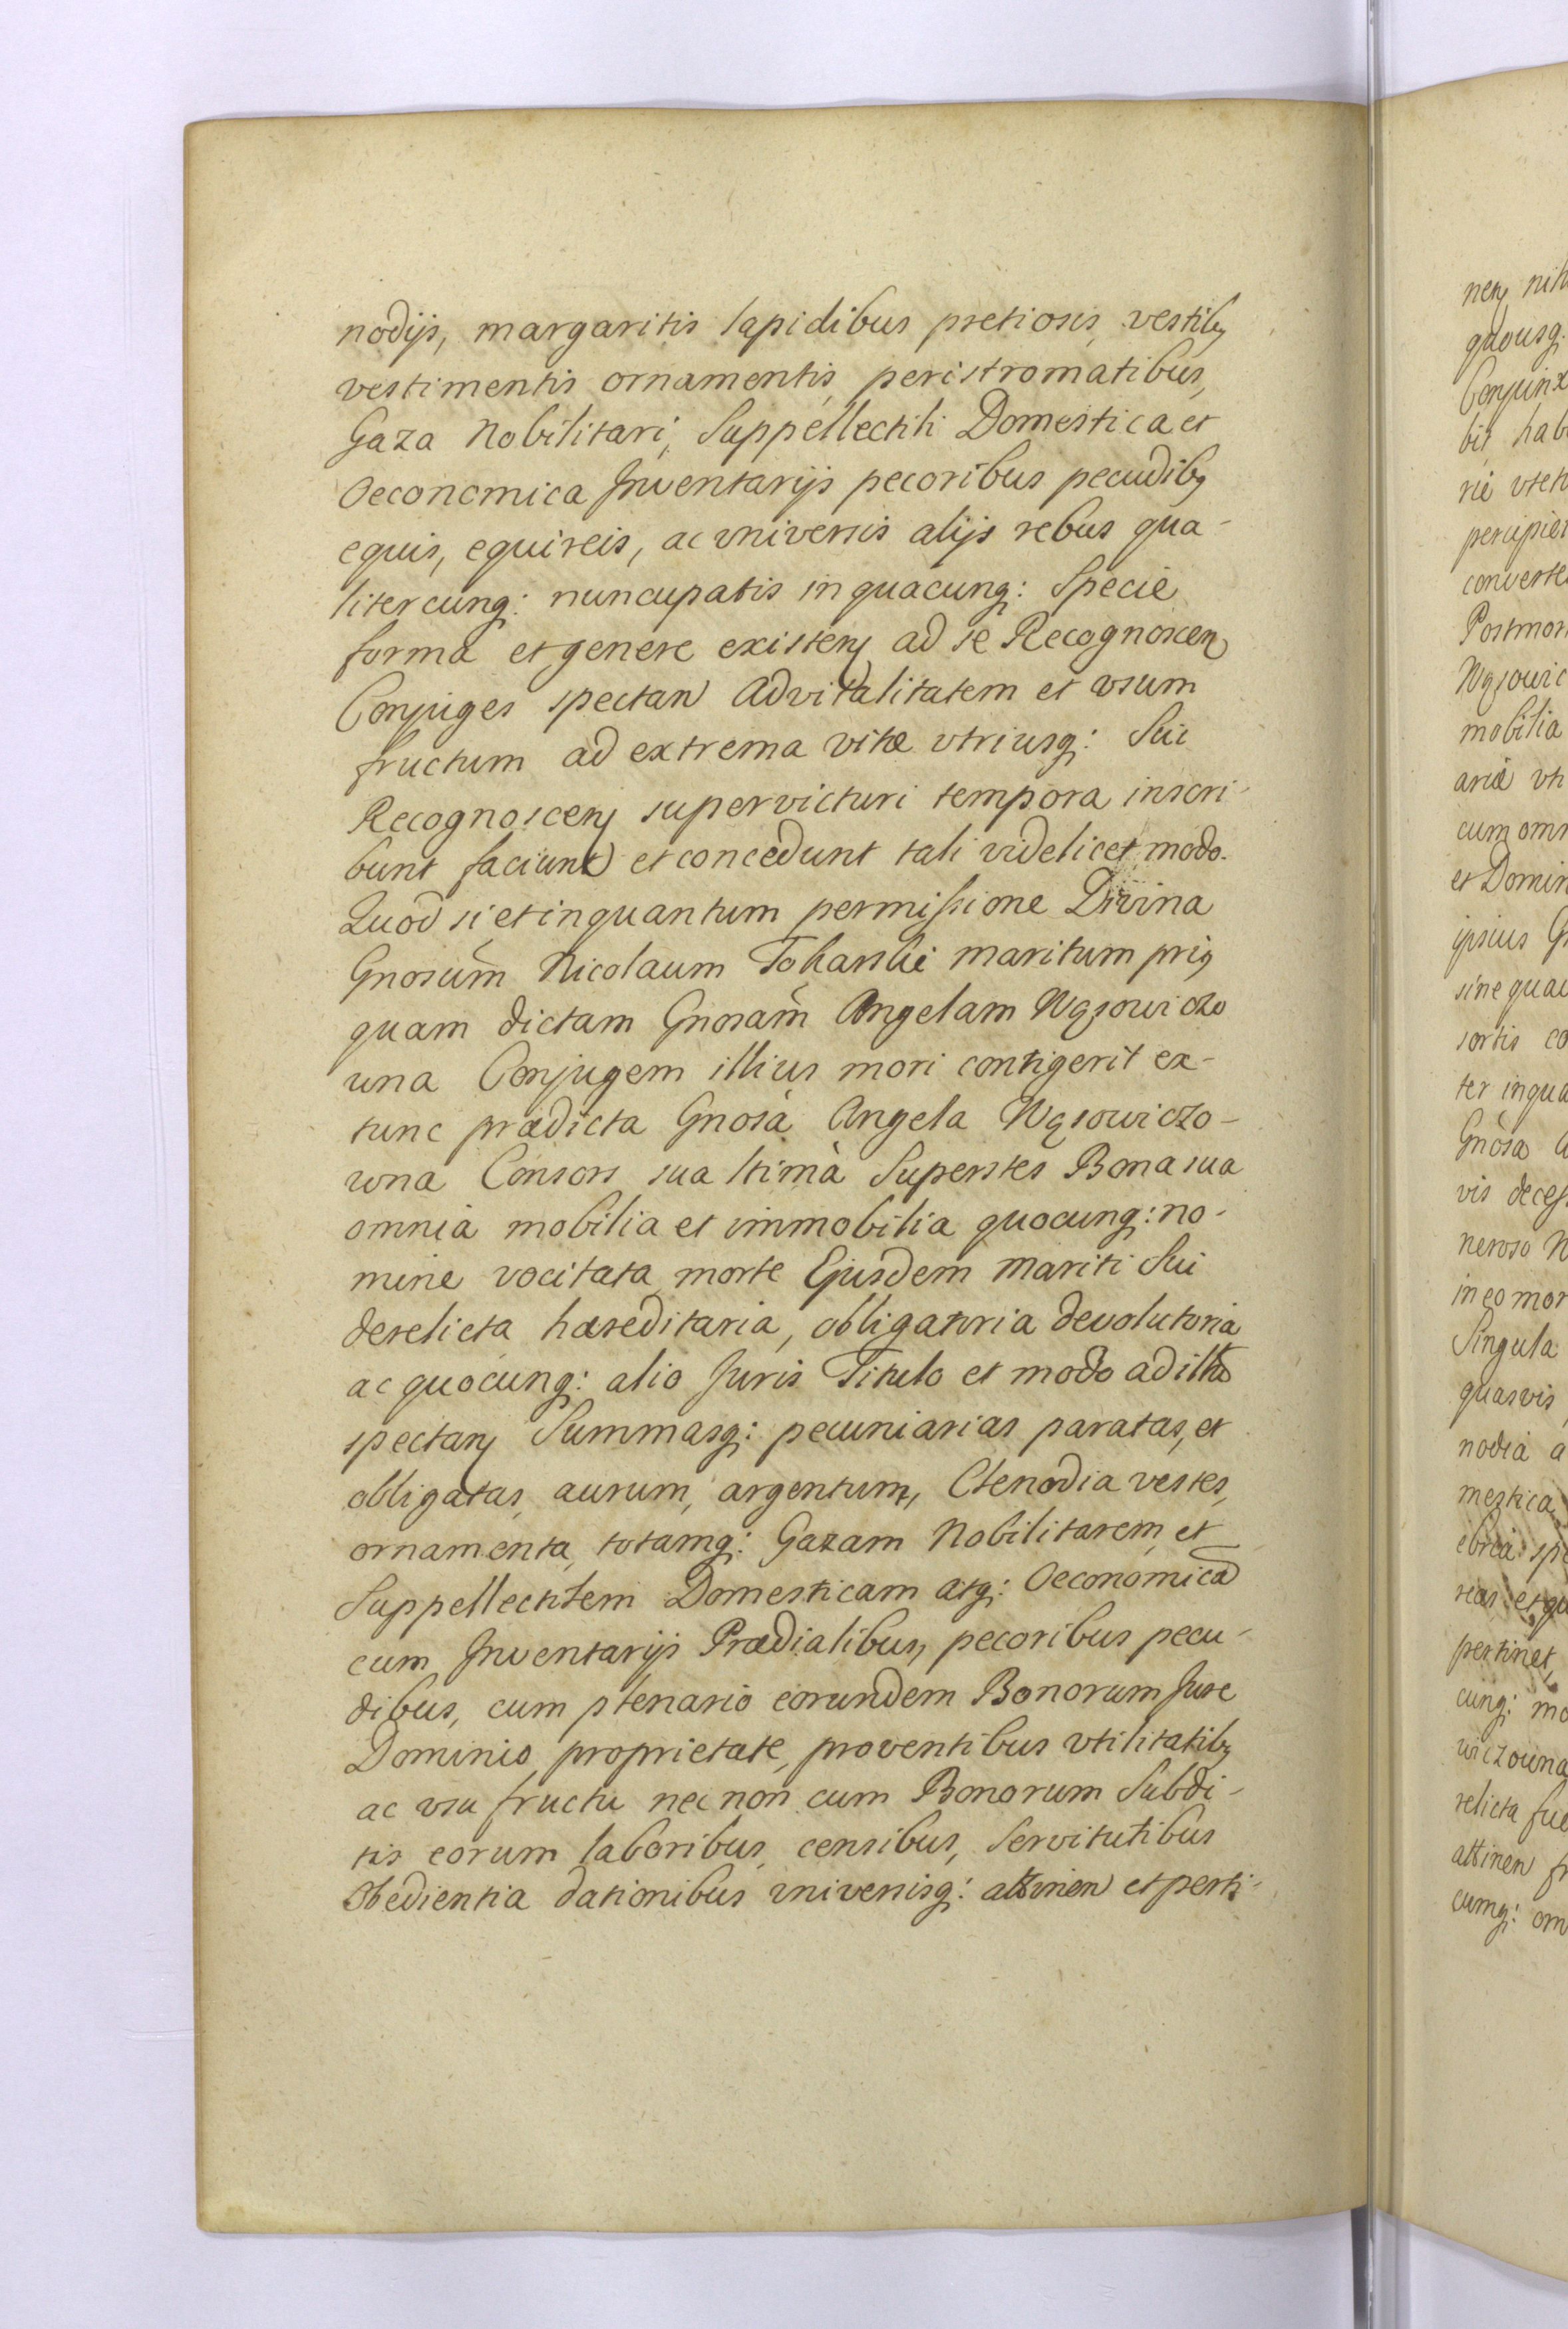 nodijs, margaritis lapidibus pretiosis, vestibꝫ
vestimentis ornamentis, peristromatibus,
Gaza Nobilitari, Suppellectili Domestica et
Oeconomica Inventarijs pecoribus pecudibꝫ
equis, equireis, ac vniversis alijs rebus qua-
litercunq: nuncupatis in quacunq: Specie
forma et genere existenꝫ ad se Recognoscenꝫ
Conjuges spectan Advitalitatem et vsum
fructum ad extrema vitæ vtriusq: Sui
Recognoscenꝫ supervicturi tempora inscri-
bunt faciunt et concedunt tali videlicet modo.
Quod si, et inquantum permissione Divina
Gnosum Nicolaum Tokarski maritum priꝫ
quam dictam Gnosam Angelam Wąsowiczo
wna Conjugem illius mori contigerit ex-
tunc prædicta Gnosa Angela Wąsowiczo-
wna Consors sua ltima Superstes Bona sua
omnia mobilia et immobilia quocunq: no-
mine vocitata morte Ejusdem Mariti Sui
derelicta hæreditaria, obligatoria devolutoria
ac quocunq: alio Juris Titulo et modo ad illū
spectanꝫ Summasq: pecuniarias paratas, et
obligatas, aurum, argentum, Clenodia vestes,
ornamenta, totamq: Gazam Nobilitarem, et
Suppellectilem Domesticam atq: Oeconomicā
cum Inventarijs Prædialibus, pecoribus pecu-
dibus, cum plenario eorundem Bonorum Jure
Dominio, proprietate, proventibus vtilitatibꝫ
ac vsu fructu nec non cum Bonorum Subdi-
tis eorum laboribus, censibus, Servitutibus
Obedientia dationibus vniversisq: attinen et perti-